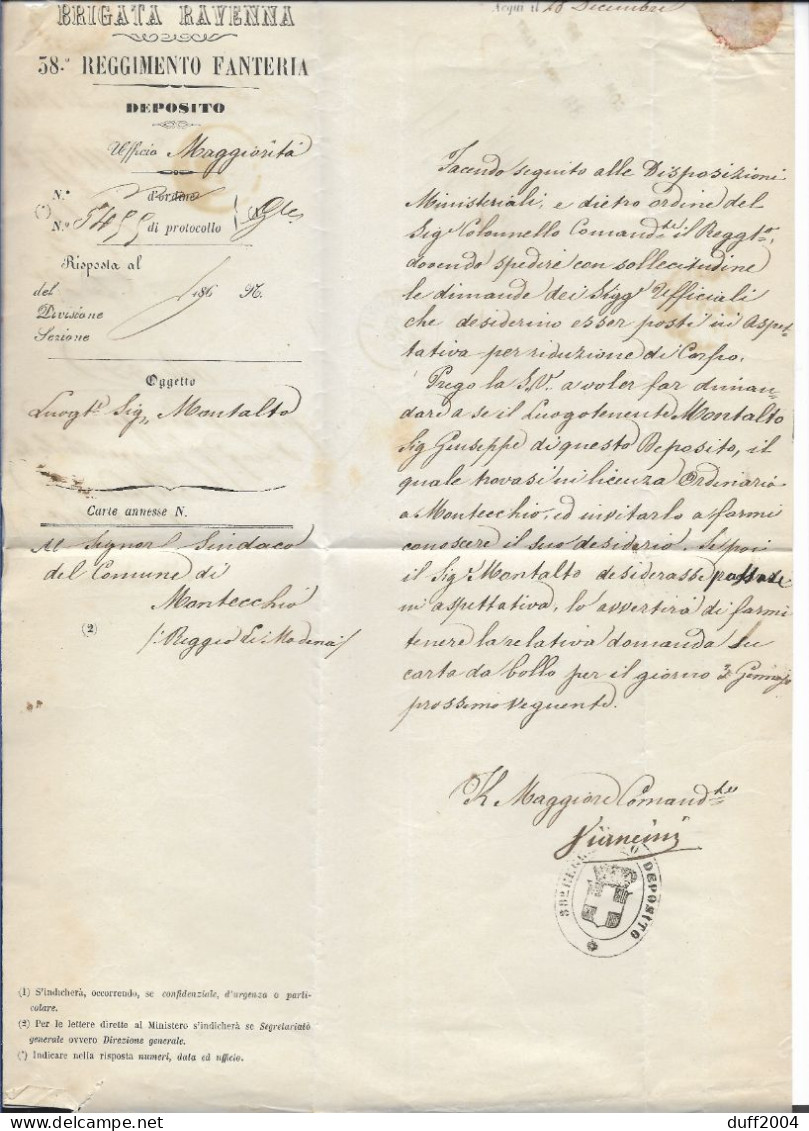 BRIGATA RAVENNA
38.º REGGIMENTO FANTERIA
DEPOSITO
Ufficio Maggiorità
N.º d'ordine
(*) N.º 5499 di protocollo
Risposta al
del 186
Divisione N.
Sezione
Oggetto
Luogt.e Sig. Montalto
Carte annesse N.
Al Signor Sindaco
del Comune di
Montecchio
(2)
(Reggio di Modena)
(1) S'indicherà, occorrendo, se confidenziale, d'urgenza o parti-
colare.
(2) Per le lettere dirette al Ministero s'indicherà se Segretariato
generale ovvero Direzione generale.
(*) Indicare nella risposta numeri, data ed ufficio.
Acqui il 28 Dicembre
Facendo seguito alle Disposizioni
Ministeriali, e dietro ordine del
Sig.r Colonnello Comand.te il Reggt.o,
dovendo spedire con sollecitudine
le dimande dei Sigg.i Ufficiali
che desiderino esser posti in aspet-
tativa per riduzione di Corpo.
Prego la S.V. a voler far diman-
dare a se il Luogotenente Montalto
Sig Giuseppe di questo Deposito, il
quale trovasi in licenza Ordinaria
a Montecchio, ed invitarlo a farmi
conoscere il suo desiderio. Se poi
il Sig.r Montalto desiderasse passare
in aspettativa, lo avvertirà di farmi
tenere la relativa domanda su
carta da bollo per il giorno 3 Gennajo
prossimo veguente.
Il Maggiore Comand.te
DEPOSITO
duff2004